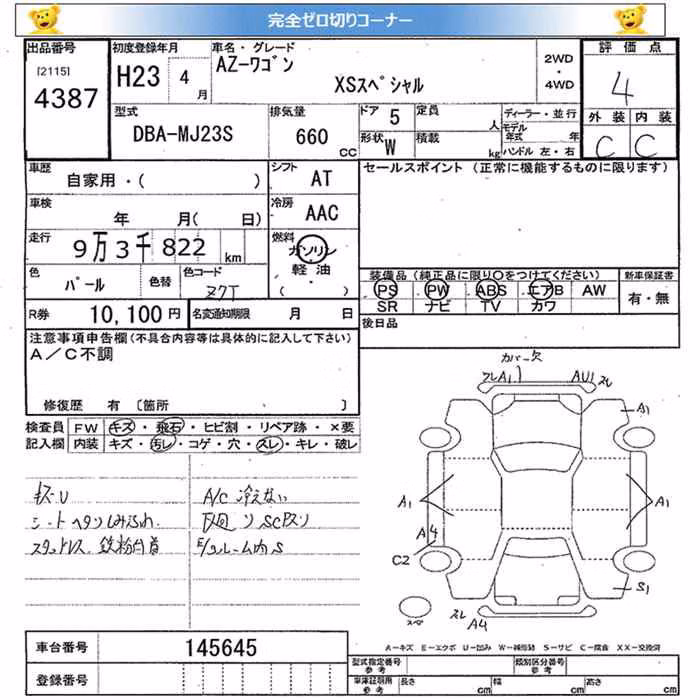 完全ゼロ切りコーナー
出品番号
[2115]
4387
初度登録年月
H23 4月
車名・グレード
AZ-ワゴン
XSスペシャル
2WD
・
4WD
評価点
4
外装 内装
C C
型式
DBA-MJ23S
排気量
660
CC
ドア 5
形状 W
定員
人
積載
kg
ディーラー・並行
モデル年式 年
ハンドル 左・右
車歴
自家用・( )
シフト AT
セールスポイント (正常に機能するものに限ります)
車検
年 月( 日)
冷房 AAC
走行
9万3千822 km
燃料
ガソリン
・
軽油
( )
色
パール
色替
色コード
ZQT
装備品(純正品に限り○をつけてください)
PS PW ABS エアB AW
SR ナビ TV カワ
新車保証書
有・無
R券 10,100円
名変通知期限 月 日
後日品
注意事項申告欄(不具合内容等は具体的に記入して下さい)
A/C不調
修復歴 有 〔箇所 〕
検査員記入欄
FW キズ・飛石・ヒビ割・リペア跡・×要
内装 キズ・汚レ・コゲ・穴・スレ・キレ・破レ
キズU
シートヘタリ
スタットレス 鉄粉付着
A/C 冷えない
下廻り SCPスリ
カバー欠
スレ A1
AU1 スレ
A1
A1
A1
A4
C2
S1
スペ
スレ
A4
車台番号 145645
登録番号
A-キズ E-エクボ U-凹み W-補修跡 S-サビ C-腐食 XX-交換済
型式指定番号
参考
類別区分番号
参考
車庫証明用
参考
長さ cm
幅 cm
高さ cm